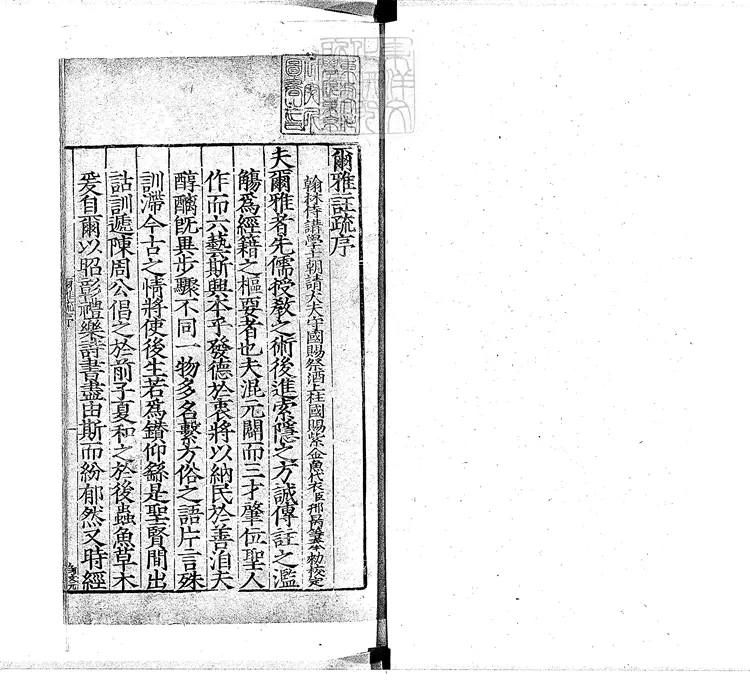 爾雅註疏序
翰林侍講學士朝請大夫守國子祭酒上柱國賜紫金魚袋臣邢昺等奉勑校定
夫爾雅者先儒授教之術後進索隱之方誠傳註之濫
觴爲經籍之樞要者也夫混元闢而三才肇位聖人
作而六藝斯興本乎發德於衷將以納民於善洎夫
醇醨旣異步驟不同一物多名繫方俗之語片言殊
訓滯今古之情將使後生若爲鑚仰繇是聖賢間出
詁訓遞陳周公倡之於前子夏和之於後蟲魚草木
爰自爾以昭彰禮樂詩書盡由斯而紛郁然又時經